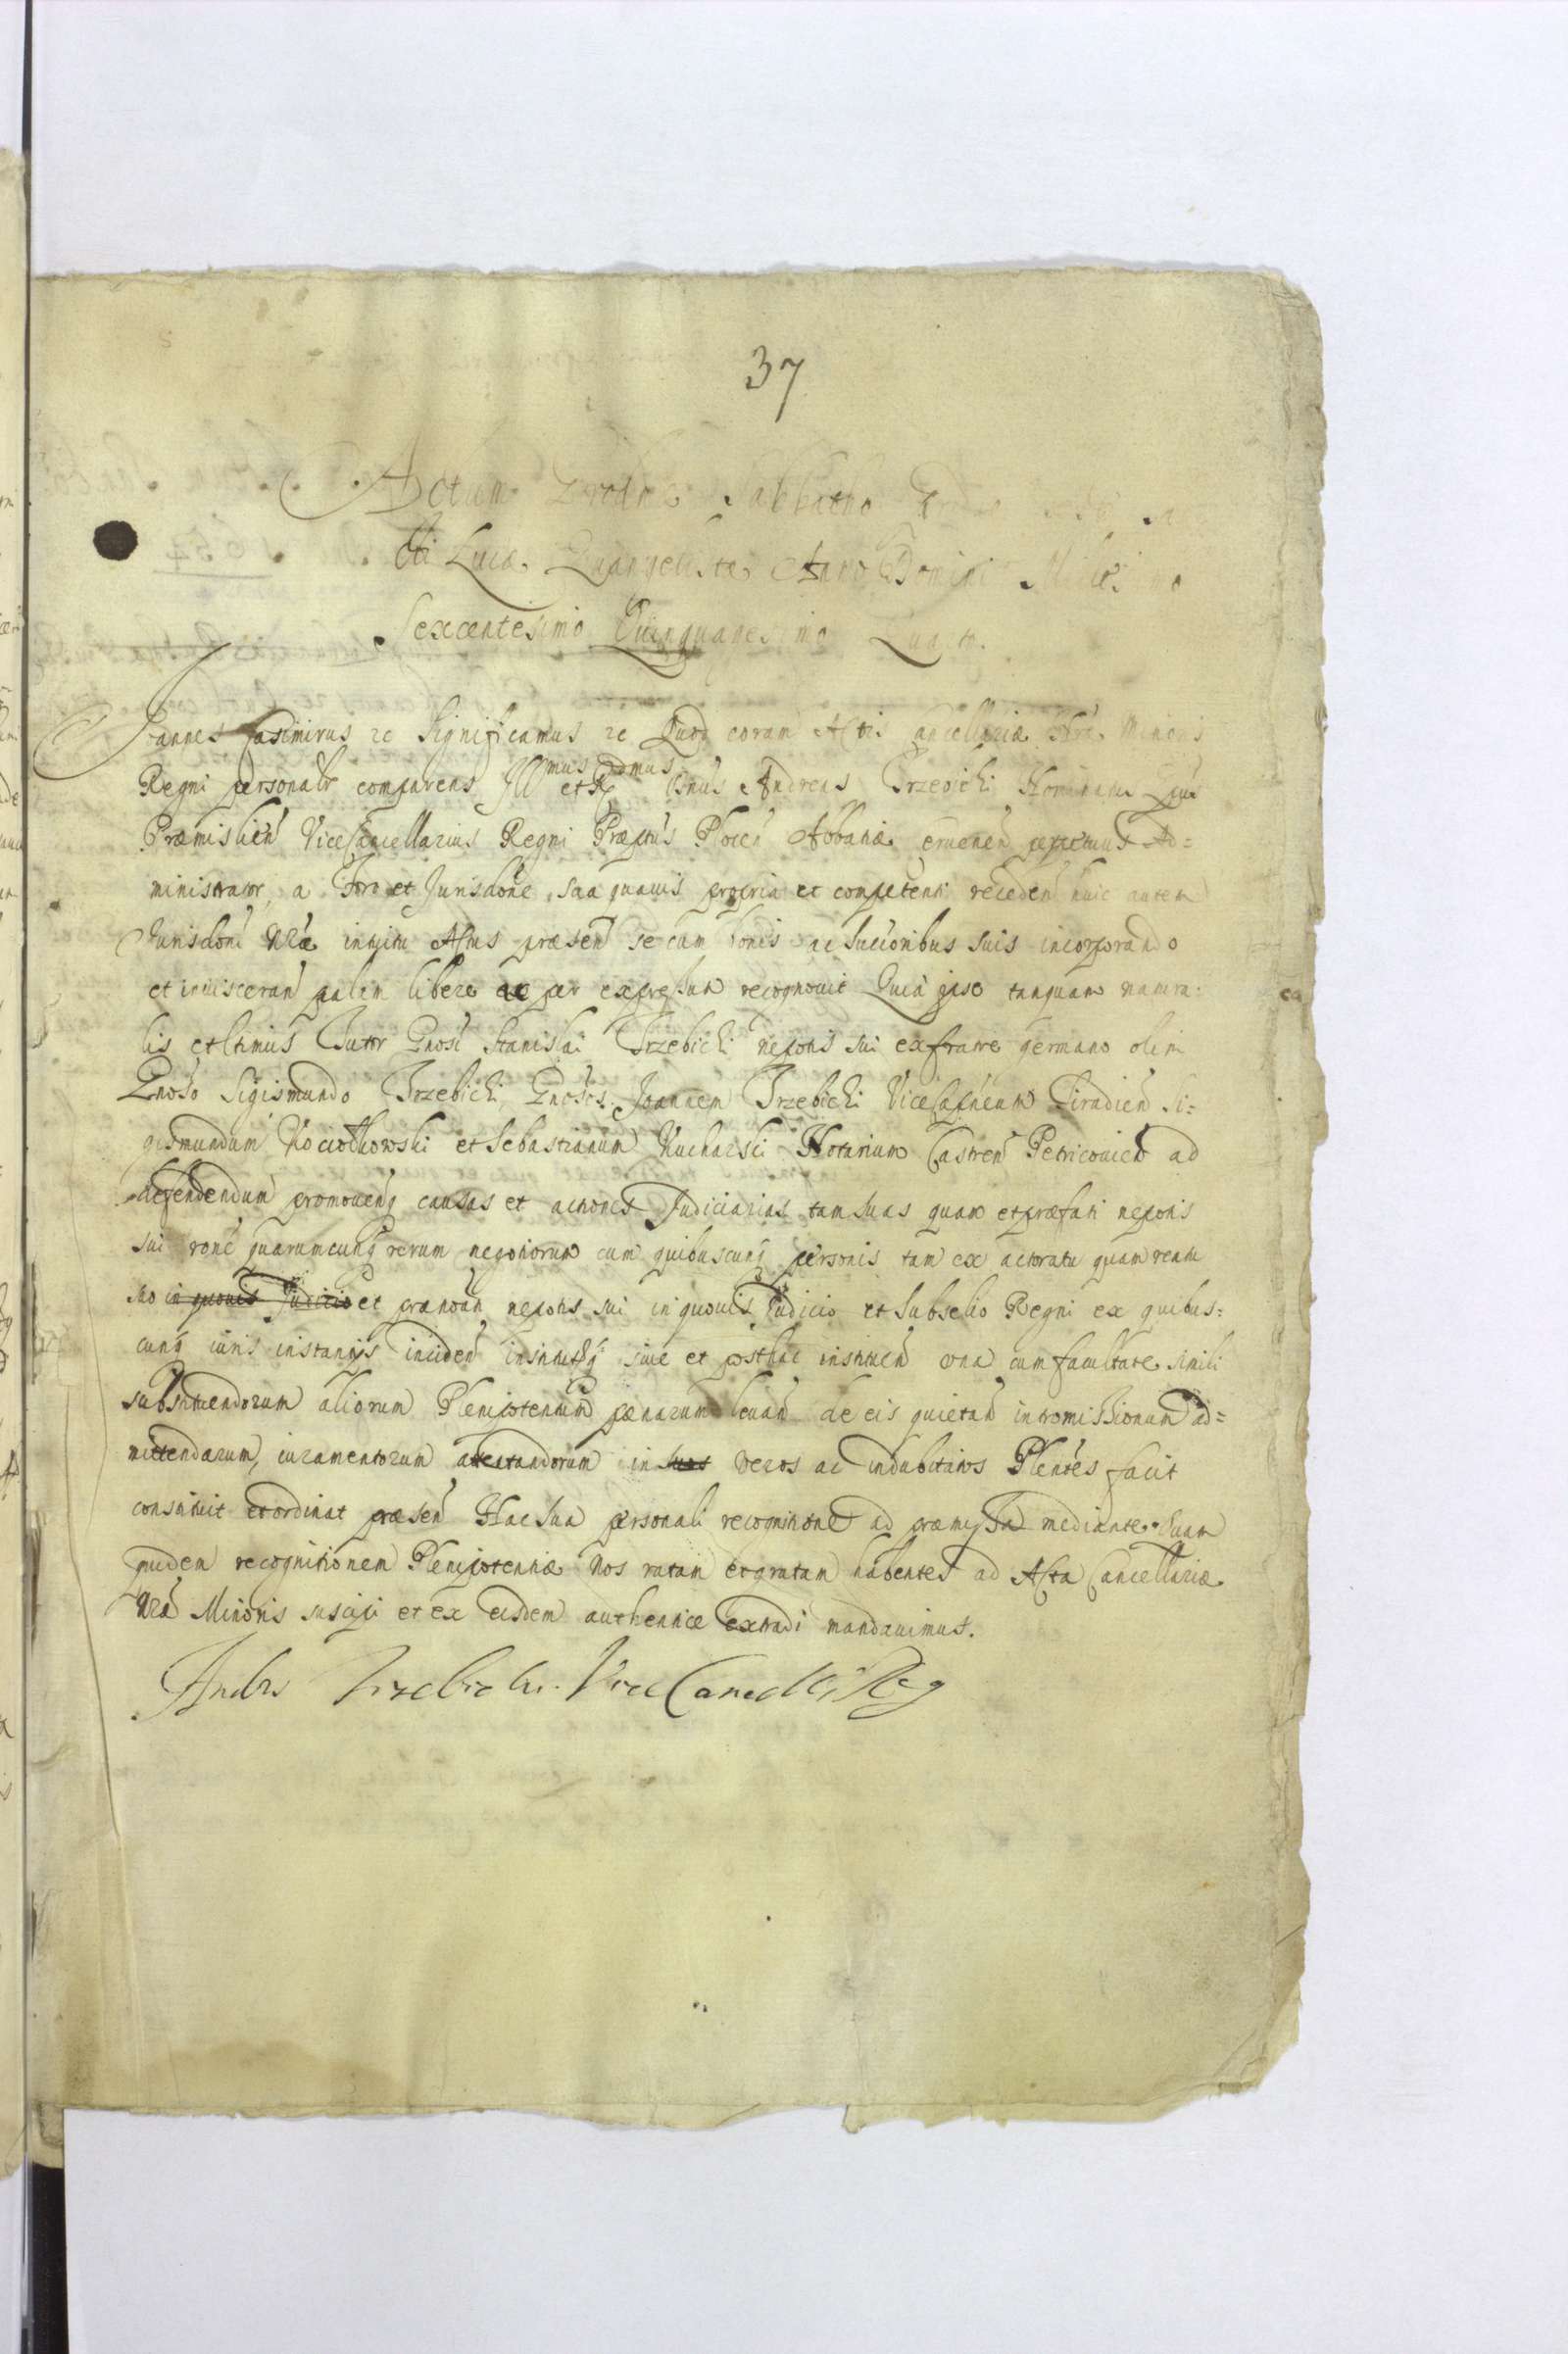 37
Actum Grodnæ Sabbatho
cti Lucæ Euangelistæ Anno Domini Millesimo
Sexcentesimo Quinquagesimo Quarto.
Joannes Casimirus &c Significamus &c Quod coram Actis Cancellariæ Nræ Minoris
Regni personalr comparens Illmus et Rdmus Dnus Andreas Trzebicki Nominatus Eppus
Præmislien ViceCancellarius Regni Præptus Plocen Abbatiæ perpetuus Ad=
ministrator, a Foro et Jurisdone sua quauis propria et competenti receden huic autem
Jurisdoni Nræ intuitu Actus præsen se cum bonis ac succoribus suis incorporando
et inuisceran palam libere ac per expressum recognouit Quia ipse tanquam natura=
lis et ltimus Tutor Gnosi Stanislai Trzebicki nepotis sui ex fratre germano olim
Gnoso Sigismundo Trzebicki, Gnosos Joannem Trzebicki ViceCapneum Siradien Si=
gismundum Kociołkowski et Sebastianum Kucharski Notarium Castren Petricouien ad
defendendum promouenq causas et actiones Judiciarias tam suas quam et præfati nepotis
sui rone quarumcunq rerum negotiorum cum quibuscunq personis tam ex actoratu quam reatu
suo in quouis Judicio et prænoan nepotis sui in quouis Judicio et Subsellio Regni ex quibus=
cunq iuris instantijs inciden institutisq siue et posthac instituen vna cum facultate simili
substituendorum aliorum Plenipotentium pænarum leuan de eis quietan intromissionum ad=
mittendarum, iuramentorum attestandorum in suos veros ac indubitatos Plentes facit
constituit et ordinat præsen Hac sua personali recognitione ad præmissa mediante. Quam
quidem recognitionem Plenipotentiæ Nos ratam et gratam habentes ad Acta Cancellariæ
Nræ Minoris suscipi et ex eisdem authentice extradi mandauimus.
Andrs Trzebicki ViceCancell: Reg